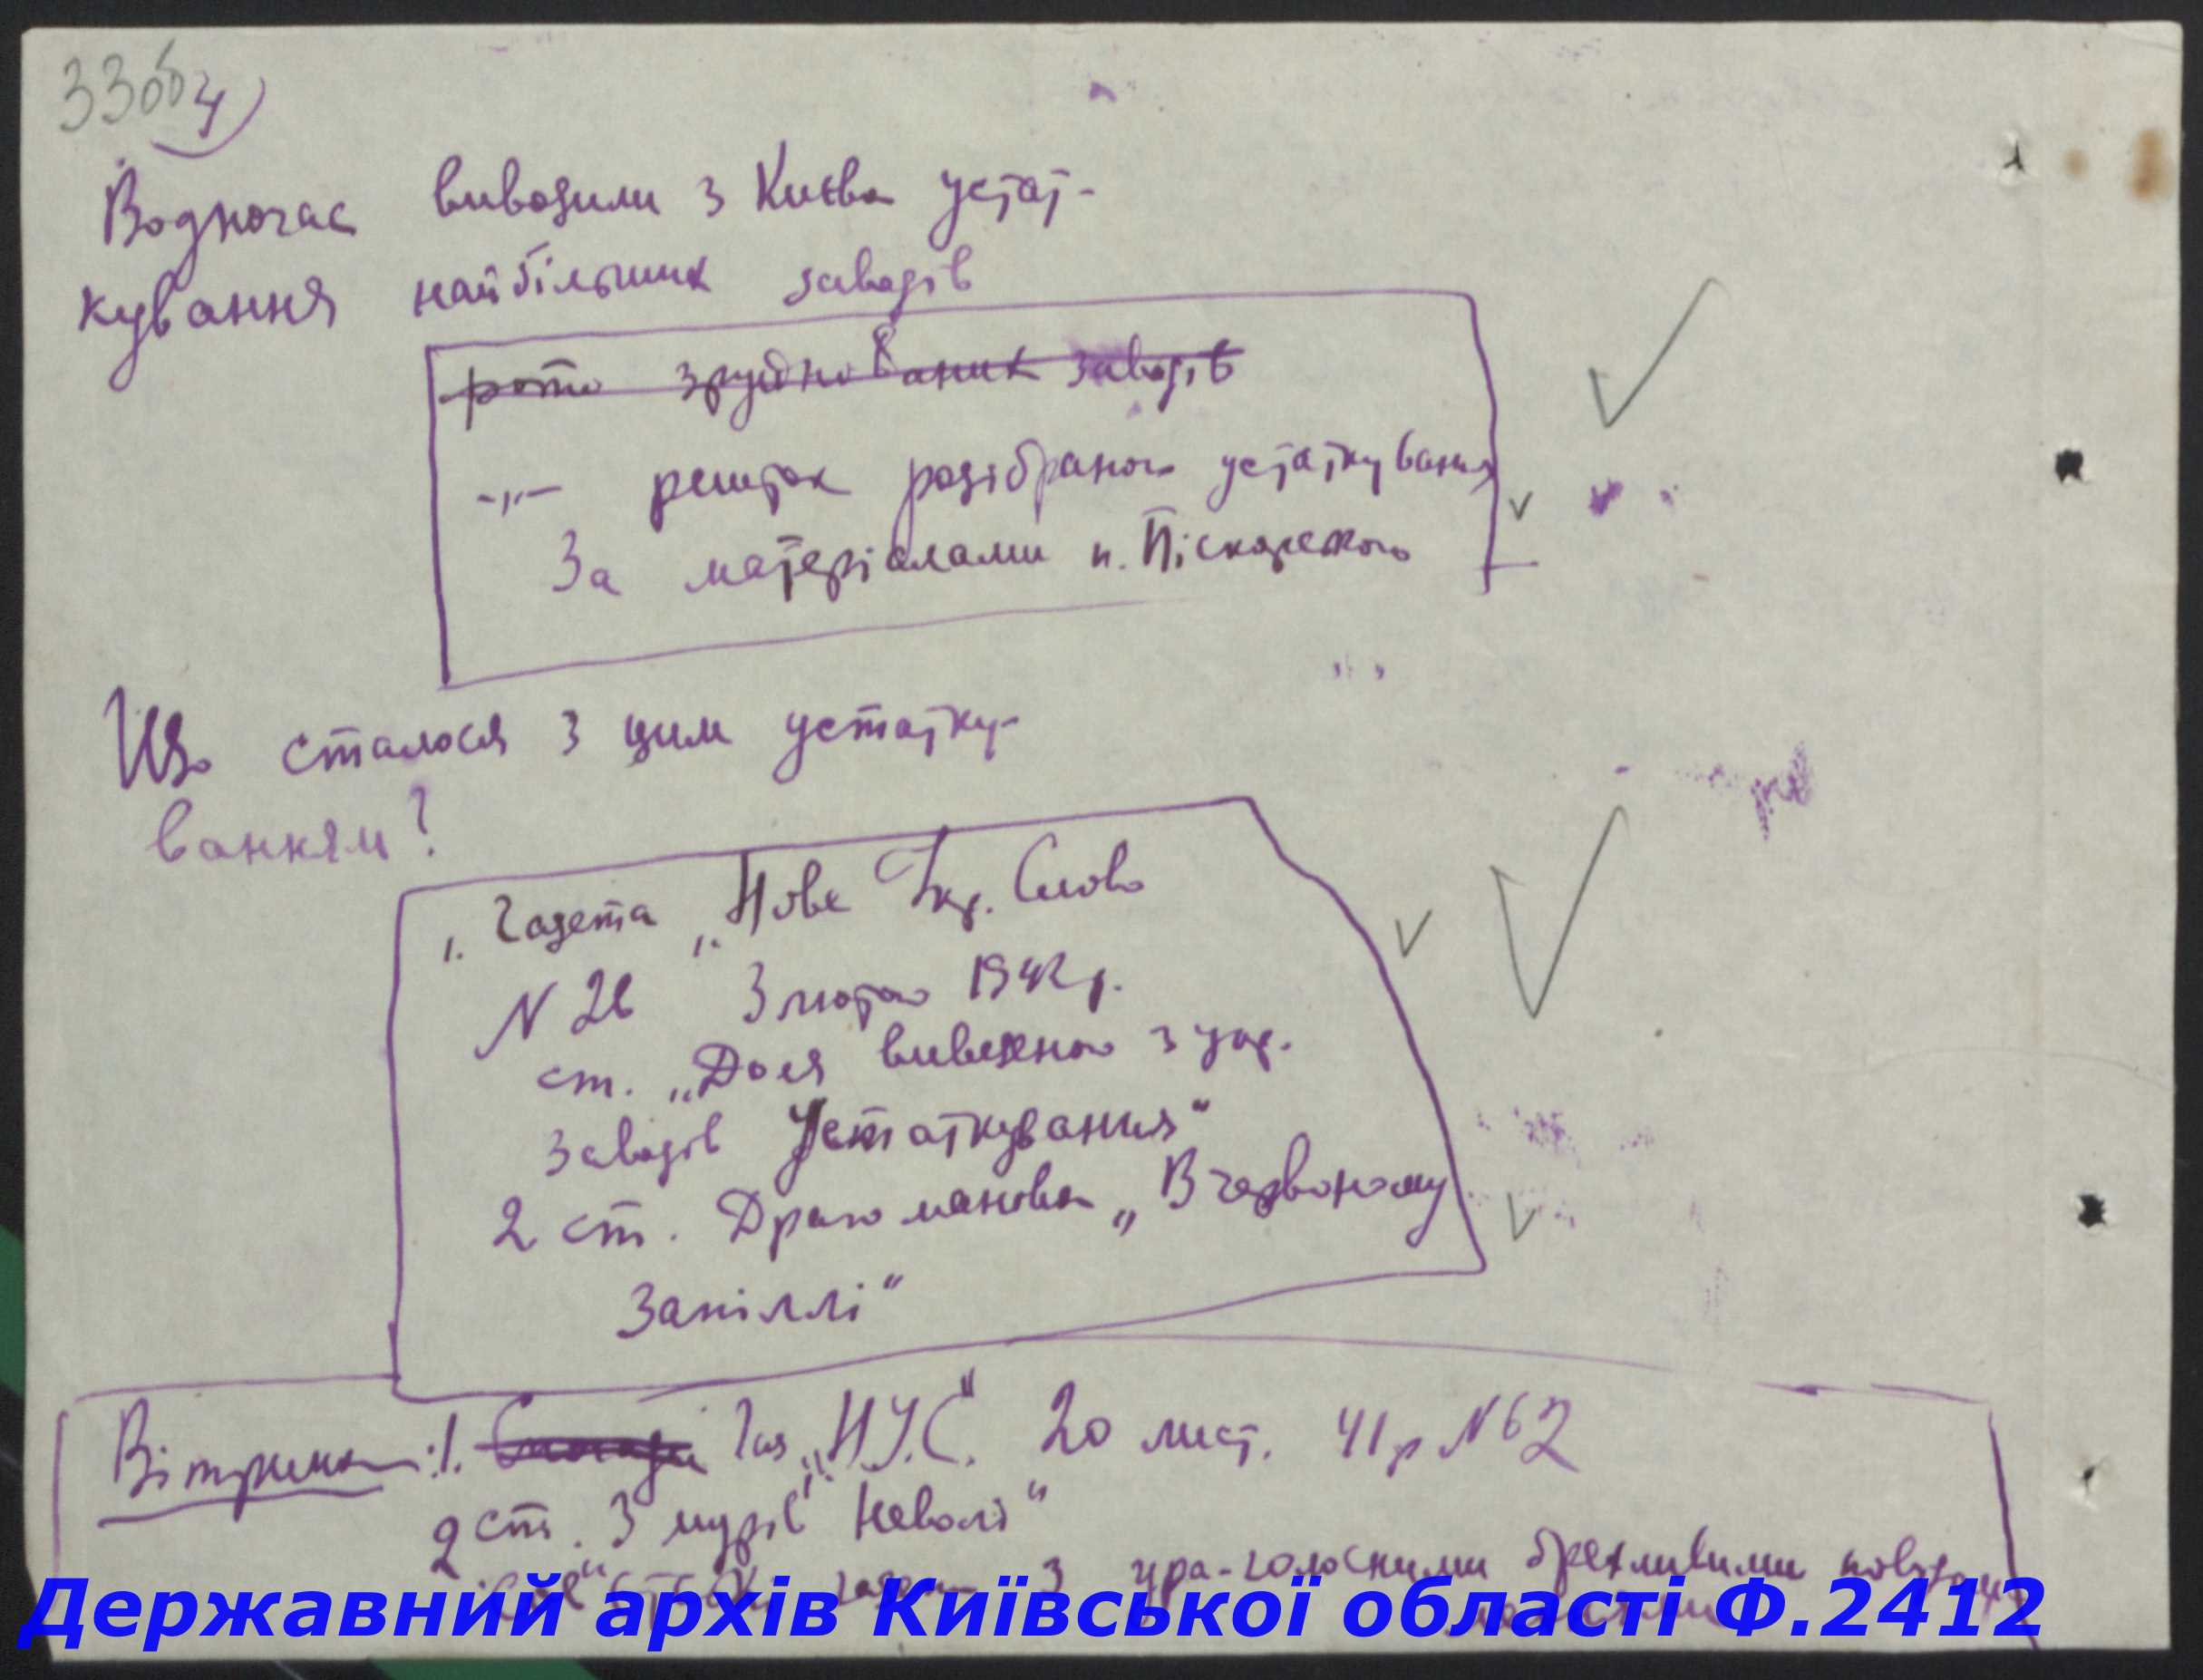 33об
4)
Водночас вивозили з Києва устат-
кування найбільших заводів
фото зруйнованих заводів
-„- решток розібраного устаткування
За матеріалами п. Піскорського
Що сталося з цим устатку-
ванням?
1. Газета „Нове Укр. Слово
N 26 3 лютого 1942 р.
ст. „Доля вивезеного з укр.
заводів Устаткування"
2 ст. Драгоманова „В червоному
Запіллі"
Вітрина: 1. Газ. „Н.У.С". 20 лист. 41 р N 62
2 ст. З мурів „Неволі"
3 ура-голосними брехливими
Державний архів Київської області Ф.2412